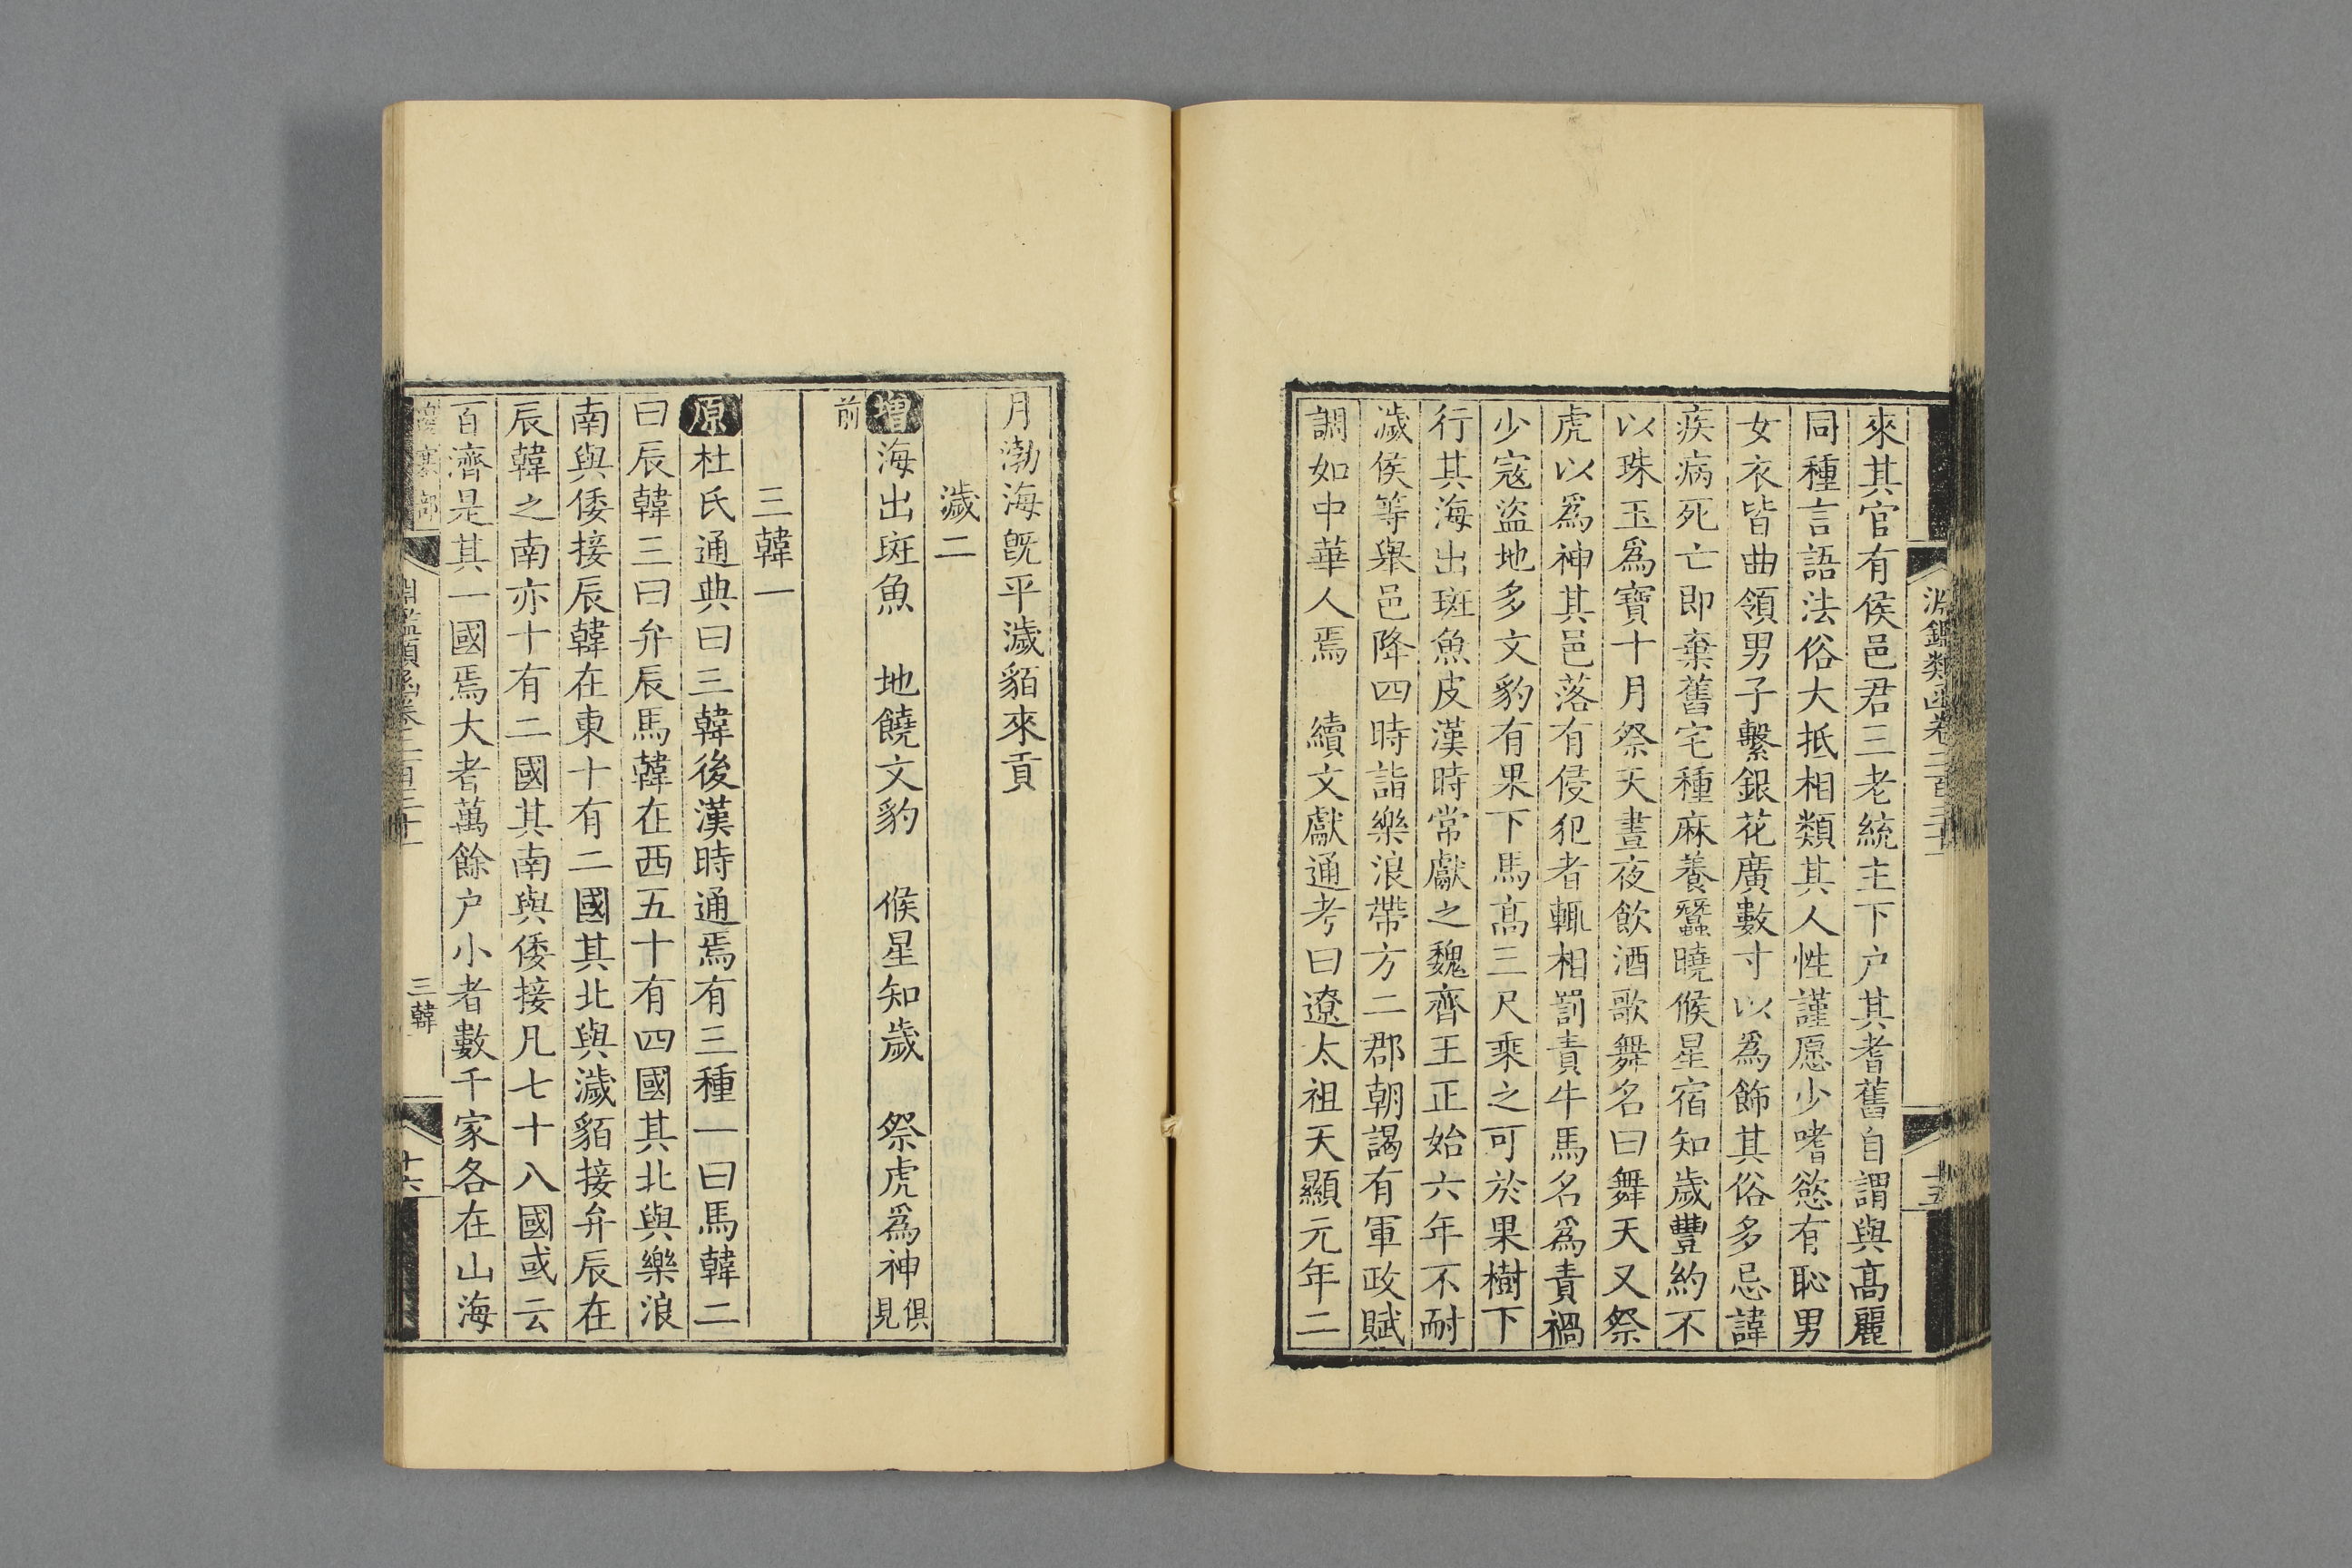 淵鑑類函卷二百三十一
十五
來其官有侯邑君三老統主下户其耆舊自謂與髙麗
同種言語法俗大抵相類其人性謹愿少嗜慾有恥男
女衣皆曲領男子繫銀花廣數寸以爲飾其俗多忌諱
疾病死亡即棄舊宅種麻養蠶曉候星宿知歲豐約不
以珠玉爲寶十月祭天晝夜飲酒歌舞名曰舞天又祭
虎以爲神其邑落有侵犯者輒相罰責牛馬名爲責禍
少寇盜地多文豹有果下馬髙三尺乘之可於果樹下
行其海出斑魚皮漢時常獻之魏齊王正始六年不耐
濊侯等舉邑降四時詣樂浪帶方二郡朝謁有軍政賦
調如中華人焉　續文獻通考曰遼太祖天顯元年二
月渤海旣平濊貊來貢
濊二
增海出斑魚　地饒文豹　候星知歲　祭虎爲神俱見
前
三韓一
原杜氏通典曰三韓後漢時通焉有三種一曰馬韓二
曰辰韓三曰弁辰馬韓在西五十有四國其北與樂浪
南與倭接辰韓在東十有二國其北與濊貊接弁辰在
辰韓之南亦十有二國其南與倭接凡七十八國或云
百濟是其一國焉大者萬餘户小者數千家各在山海
邊塞部
淵鑑類函卷二百三十一
三韓
十六